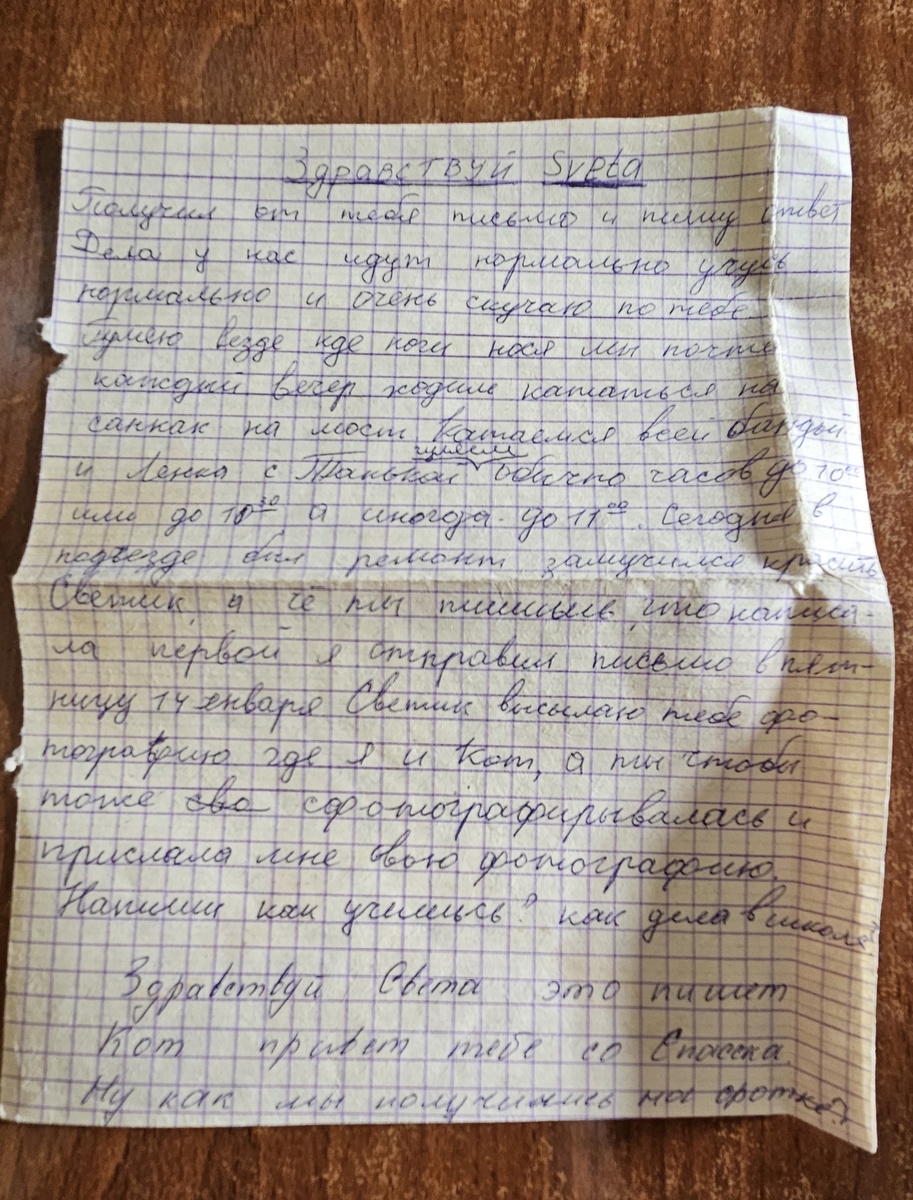 Здравствуй Sveta
Получил от тебя письмо и пишу ответ
Дела у нас идут нормально учусь
нормально и очень скучаю по тебе
Гуляю везде где ноги нося мы почти
каждый вечер ходим кататься на
санках на мост Катаемся всей бандой
гуляем
и Ленка с Танькой обычно часов до 10⁰⁰
или до 10³⁰ а иногда до 11⁰⁰. Сегодня в
подъезде был ремонт замучился красить
Светик, а чё ты пишышь, что написа-
ла первой я отправил письмо в пят-
ницу 14 января Светик высылаю тебе фо-
тографию где я и Кот, а ты чтобы
тоже сво сфотографирывалась и
прислала мне свою фотографию.
Напиши как учишься? как дела в школе?
Здравствуй Света это пишет
Кот привет тебе со Спасска
Ну как мы получились на фотке?